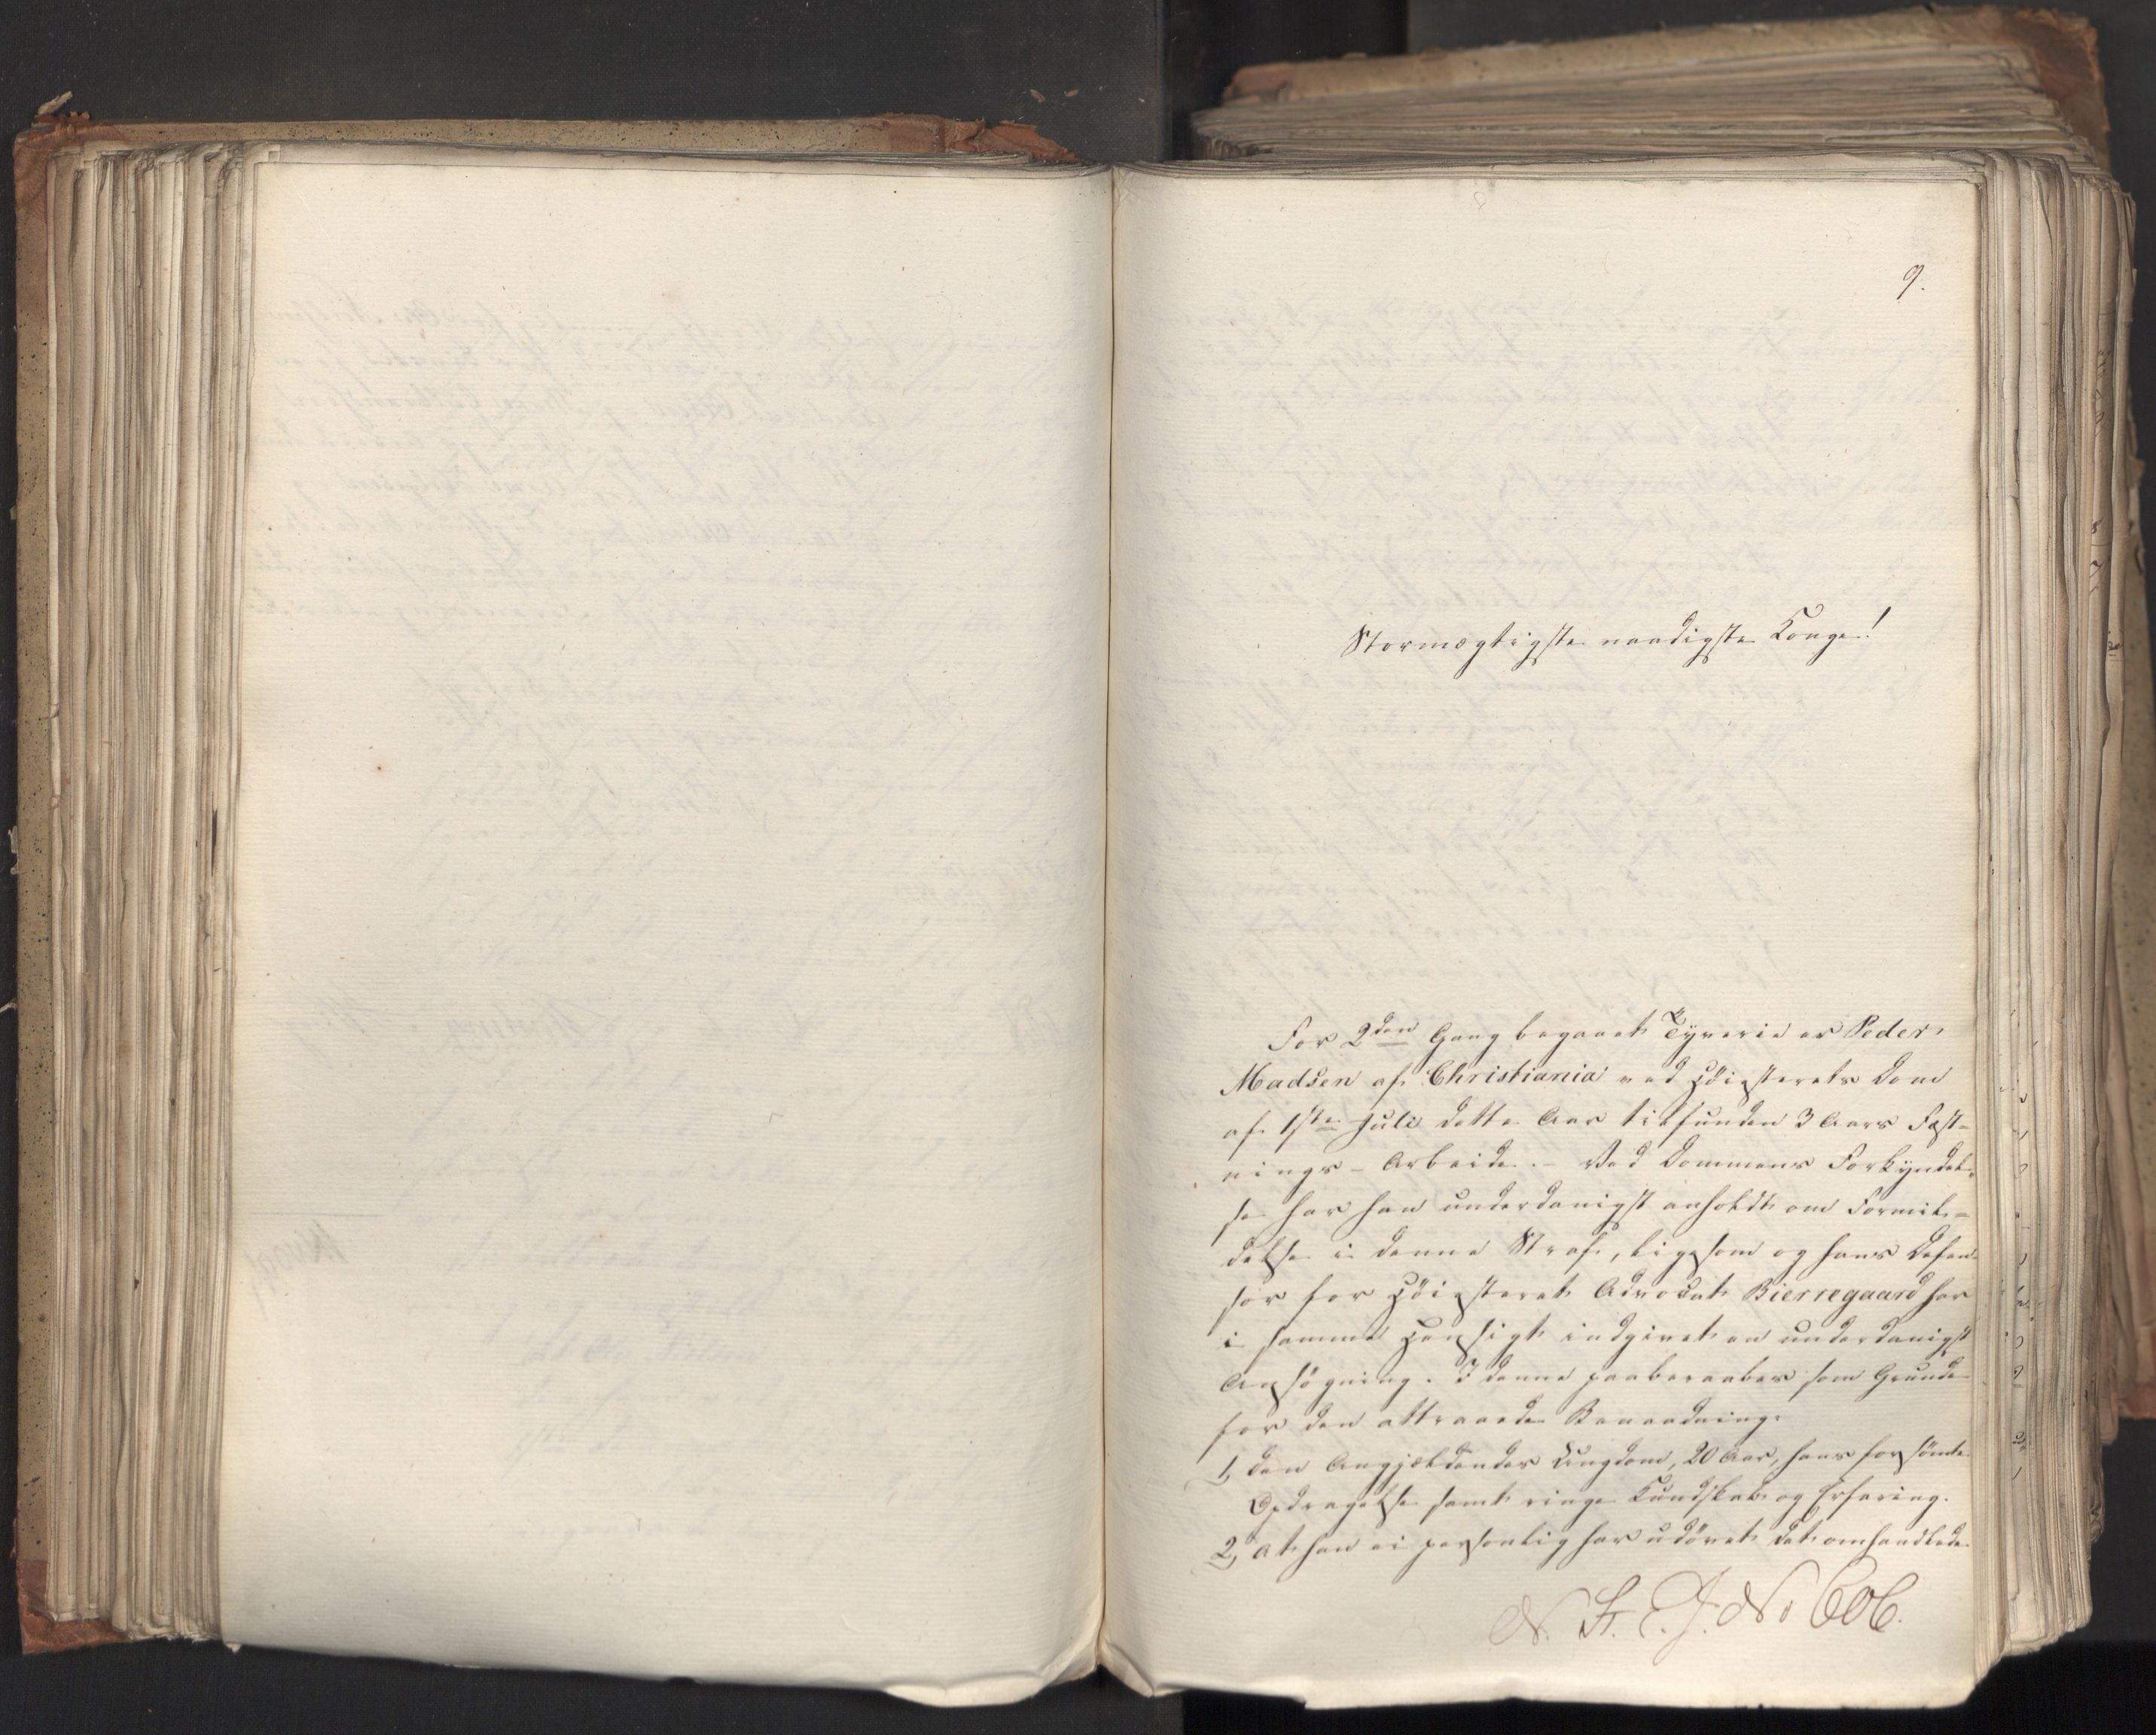 9.
Stormægtigste naadigste Konge!
For 2den Gang begaaet Tyverie er Peder
Madsen af Christiania ved Höiesterets Dom
af 1ste Juli dette Aar tilfunden 3 Aars Fæst-
nings-Arbeide. - Ved Dommens Forkyndel-
se har han underdanigst anholdt om Formil-
delse i denne Straf, ligesom og hans Defen-
sor for Höiesteret Advocat Bierregaard har
i samme Hensigt indgivet en underdanigst
Ansögning. I denne paaberaabes som Grunde
for den attraaede Benaadning:
1, Den Angjældendes Ungdom, 20 Aar, hans forsömte
Opdragelse samt ringe Kundskab og Erfaring.
2, At han ei personlig har udövet det omhandlede
N. St. E. J. No 606.